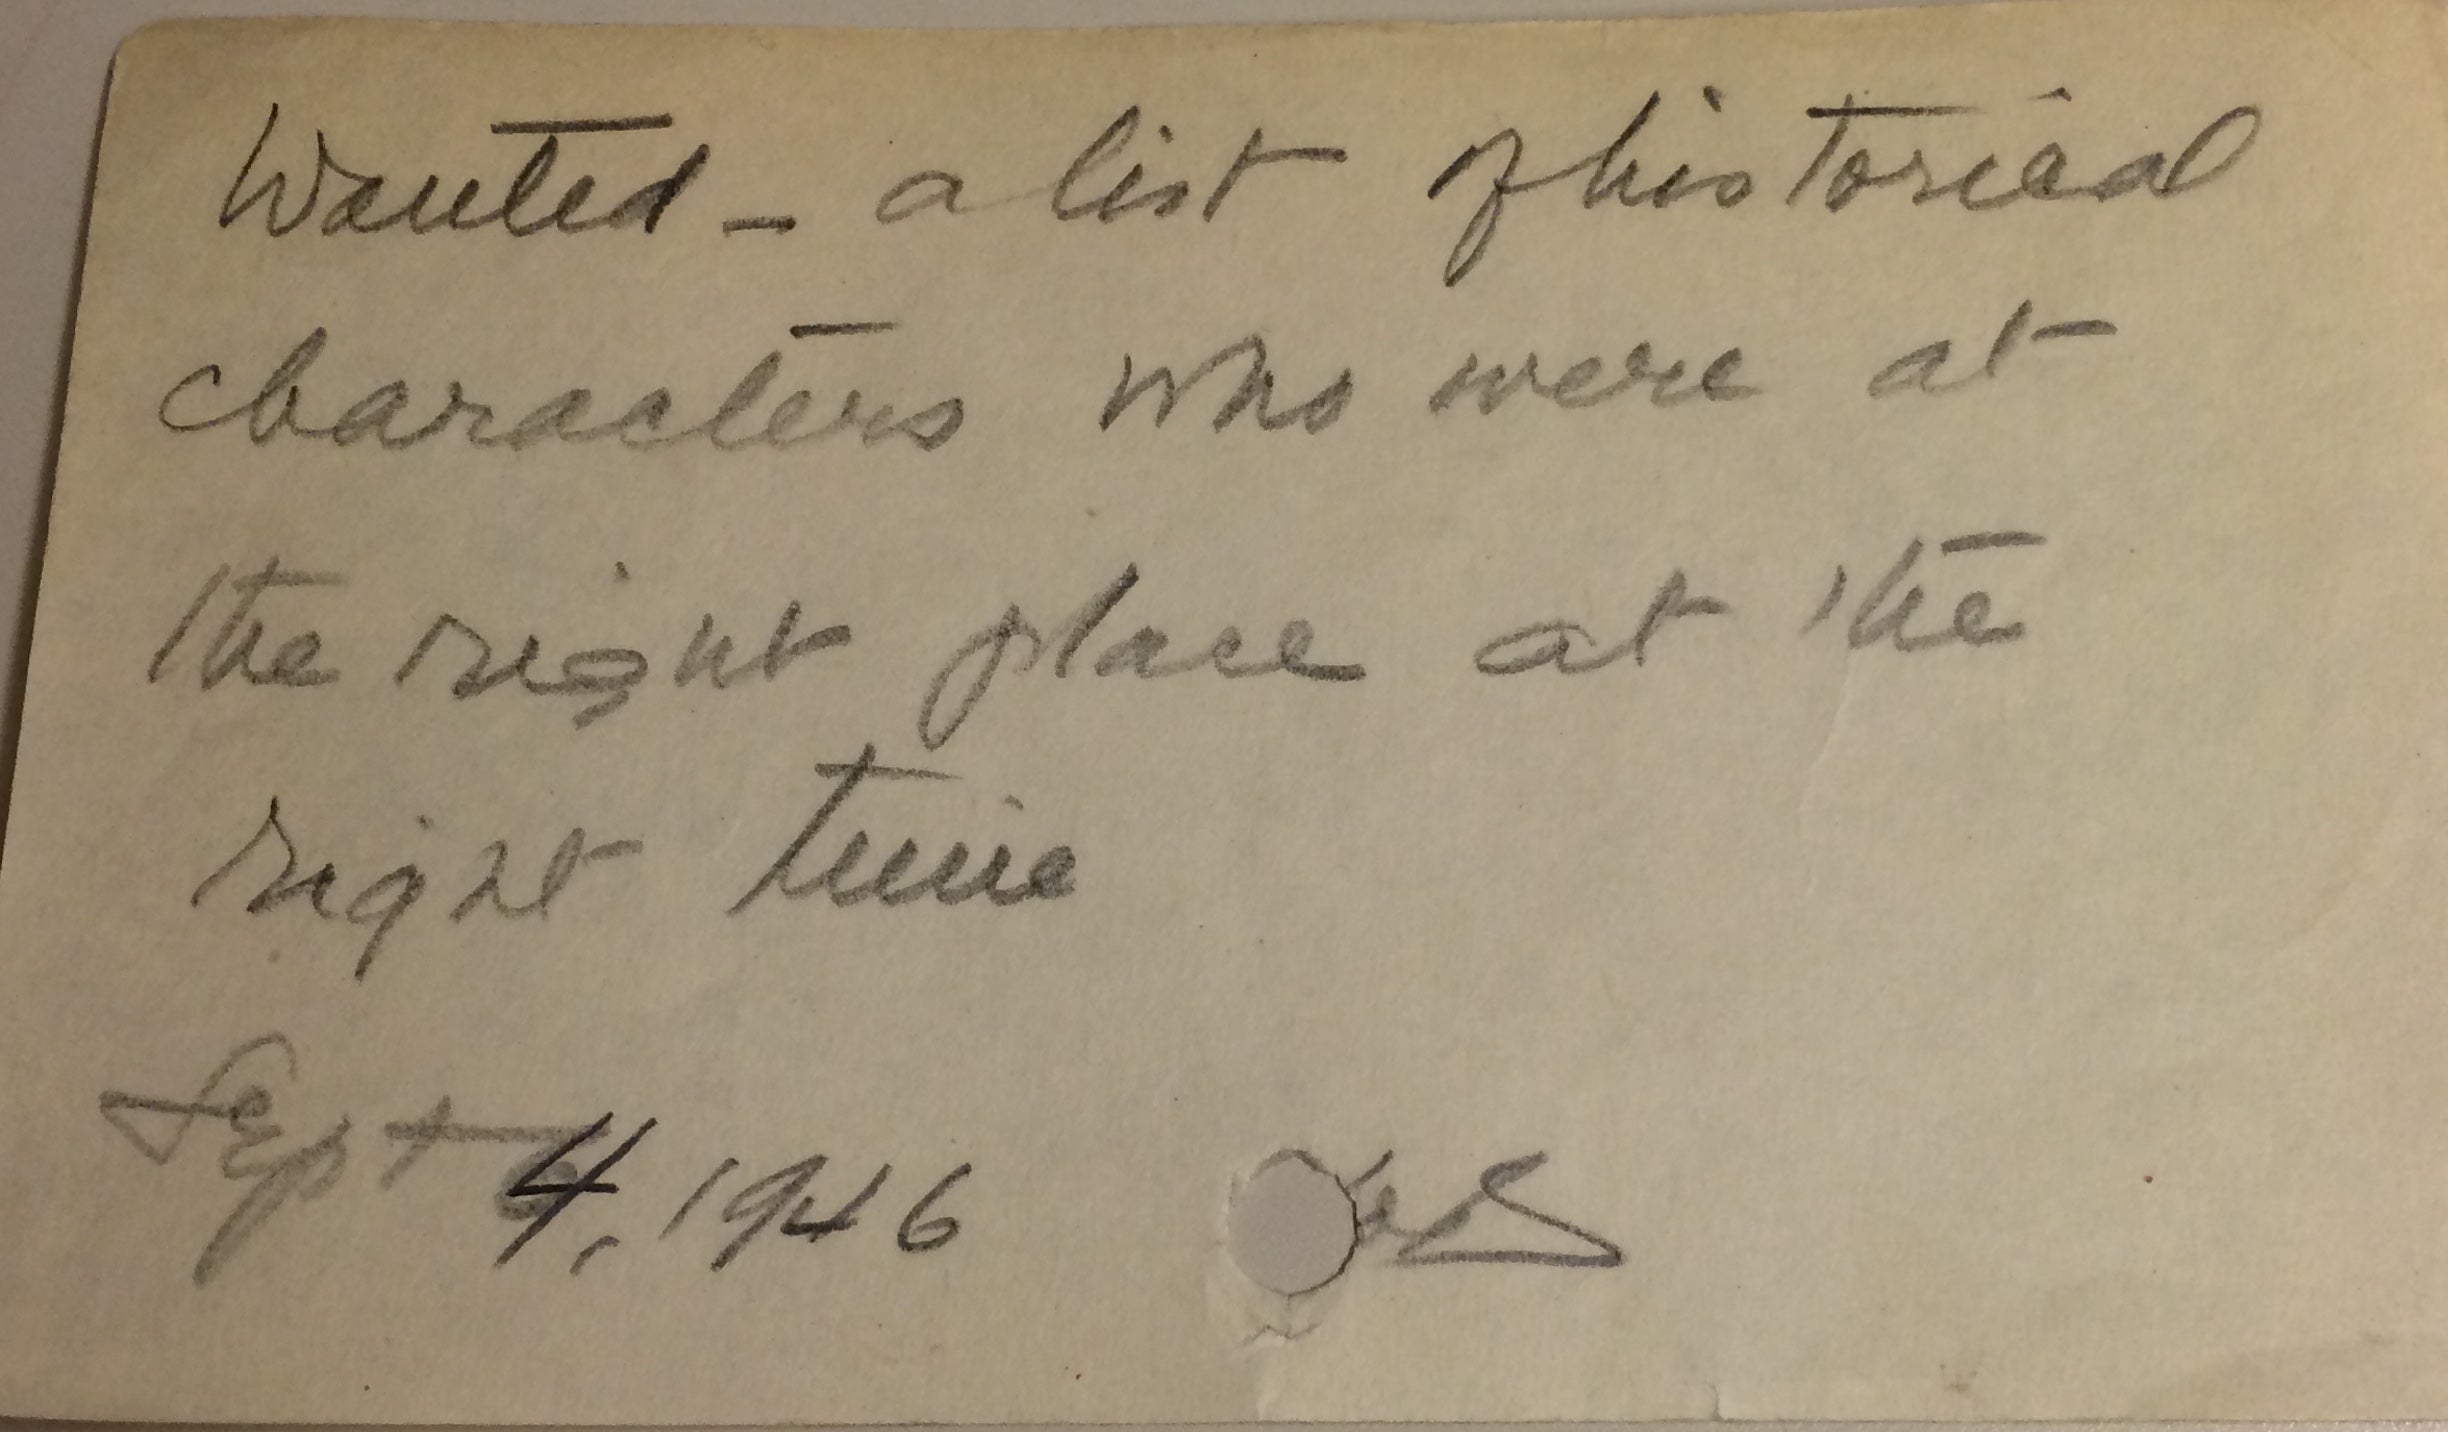 Wanted - a list of historical
characters who were at
the right place at the
right time
Sept 4, 1946